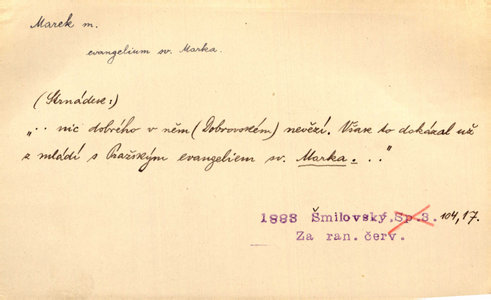 Marek m.
evangelium sv. Marka.
(Strnádese:)
„.. nic dobrého v něm (Dobrovském) nevězí. Však to dokázal už
z mládí s Pražským evangeliem sv. Marka. ..."
1883 Šmilovský.Sp.3. 104,17.
Za ran. červ.